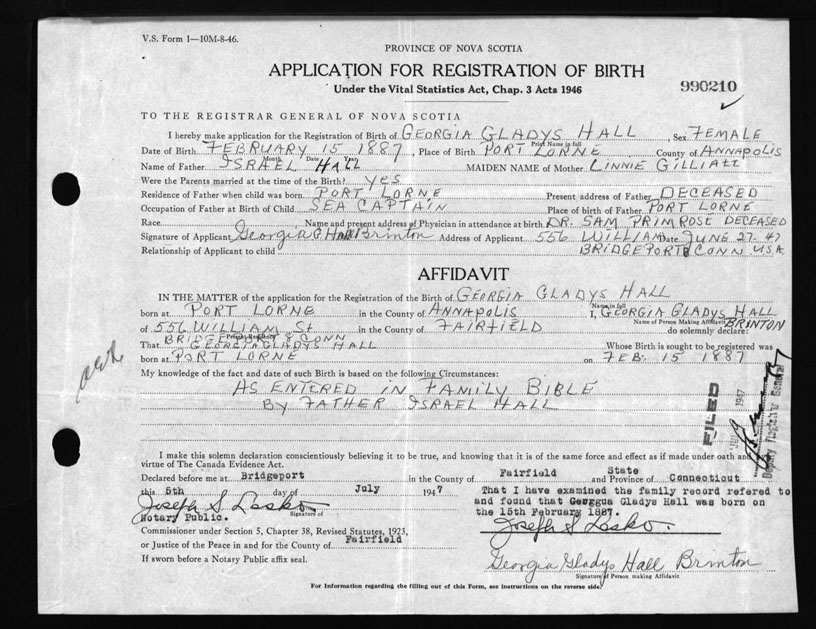 V.S. Form 1—10M-8-46.
PROVINCE OF NOVA SCOTIA
APPLICATION FOR REGISTRATION OF BIRTH
Under the Vital Statistics Act, Chap. 3 Acts 1946
990210
TO THE REGISTRAR GENERAL OF NOVA SCOTIA
I hereby make application for the Registration of Birth of GEORGIA GLADYS HALL, Sex FEMALE
Print Name in full
Date of Birth FEBRUARY 15 1887, Place of Birth PORT LORNE, County of ANNAPOLIS
Month Date Year
Name of Father ISRAEL HALL MAIDEN NAME of Mother LINNIE GILLIATT
Were the Parents married at the time of the Birth? yes
Residence of Father when child was born PORT LORNE Present address of Father DECEASED
Occupation of Father at Birth of Child SEA CAPTAIN Place of birth of Father PORT LORNE
Race Name and present address of Physician in attendance at birth DR. SAM PRIMROSE DECEASED
Signature of Applicant Georgia G. Hall Brinton Address of Applicant 556 WILLIAM Date JUNE 27-47
Relationship of Applicant to child BRIDGEPORT 8 CONN U.S.A.
AFFIDAVIT
IN THE MATTER of the application for the Registration of the Birth of GEORGIA GLADYS HALL
Name in full
born at PORT LORNE in the County of ANNAPOLIS I, GEORGIA GLADYS HALL
Name of Person Making Affidavit BRINTON
of 556 WILLIAM St in the County of FAIRFIELD do solemnly declare:
BRIDGEPORT 8 CONN
That GEORGIA GLADYS HALL Whose Birth is sought to be registered was
born at PORT LORNE on FEB. 15 1887
My knowledge of the fact and date of such Birth is based on the following Circumstances:
AS ENTERED IN FAMILY BIBLE
BY FATHER ISRAEL HALL
FILED
1947
Deputy Registrar General
I make this solemn declaration conscientiously believing it to be true, and knowing that it is of the same force and effect as if made under oath and
virtue of The Canada Evidence Act.
Declared before me at Bridgeport in the County of Fairfield State and Province of Connecticut
this 5th day of July 1947
That I have examined the family record refered to
and found that Georgua Gladys Hall was born on
the 15th February 1887.
Joseph S Lesko
Signature of
Notary Public.
Joseph S Lesko.
Commissioner under Section 5, Chapter 38, Revised Statutes, 1923,
or Justice of the Peace in and for the County of Fairfield
If sworn before a Notary Public affix seal.
Georgia Gladys Hall Brinton
Signature of Person making Affidavit
For Information regarding the filling out of this Form, see instructions on the reverse side.